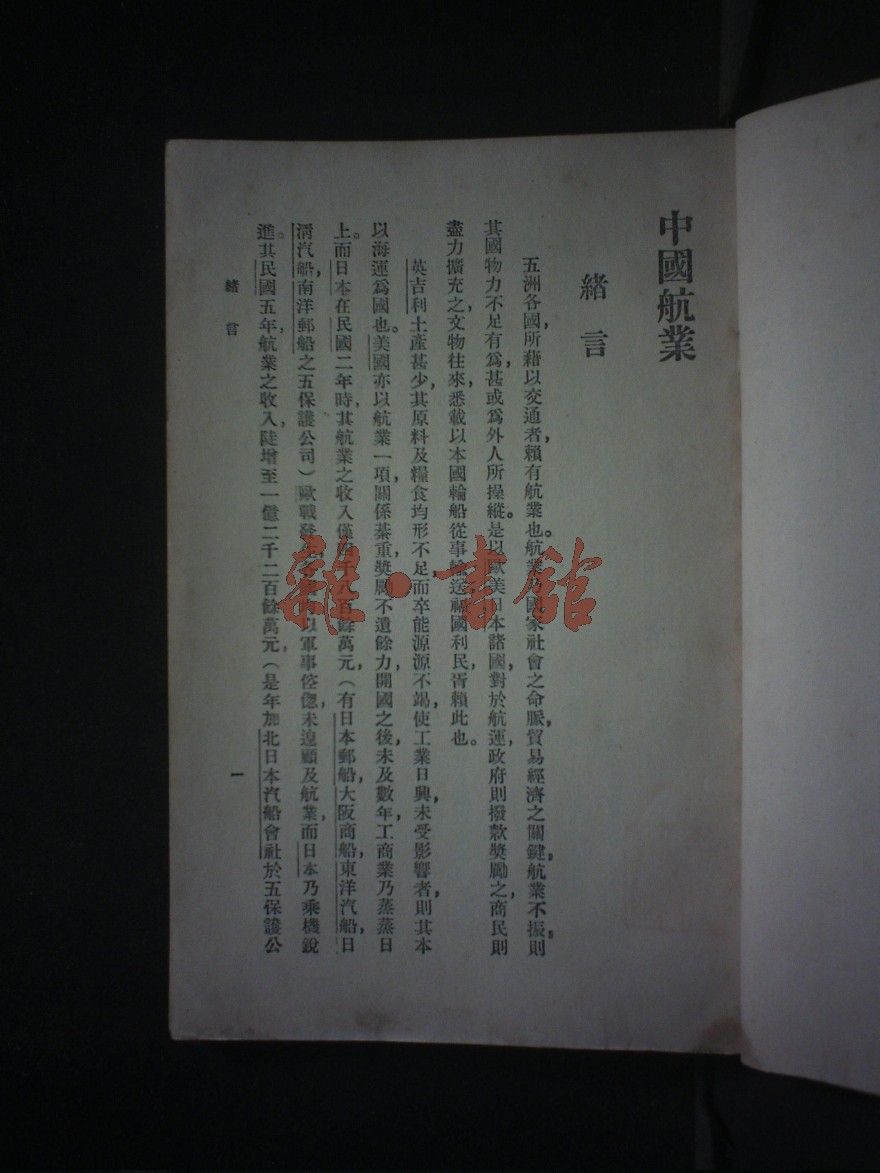 中國航業
緒言
五洲各國，所藉以交通者，賴有航業也。航業乃國家社會之命脈，貿易經濟之關鍵，航業不振，則
其國物力不足有爲，甚或爲外人所操縱。是以歐美日本諸國，對於航運，政府則撥款獎勵之，商民則
盡力擴充之，文物往來，悉載以本國輪船從事輸送，福國利民，胥賴此也。
英吉利土產甚少，其原料及糧食均形不足，而卒能源源不竭，使工業日興，未受影響者，則其本
以海運爲國也。美國亦以航業一項，關係綦重，獎勵不遺餘力，開國之後，未及數年，工商業乃蒸蒸日
上。而日本在民國二年時，其航業之收入，僅四千八百餘萬元，（有日本郵船，大阪商船，東洋汽船，日
清汽船，南洋郵船之五保護公司）歐戰發生以軍事倥傯，未遑顧及航業，而日本乃乘機銳
進。其民國五年，航業之收入，陡增至一億二千二百餘萬元，（是年加北日本汽船會社於五保護公
緒言
一
雜·書館